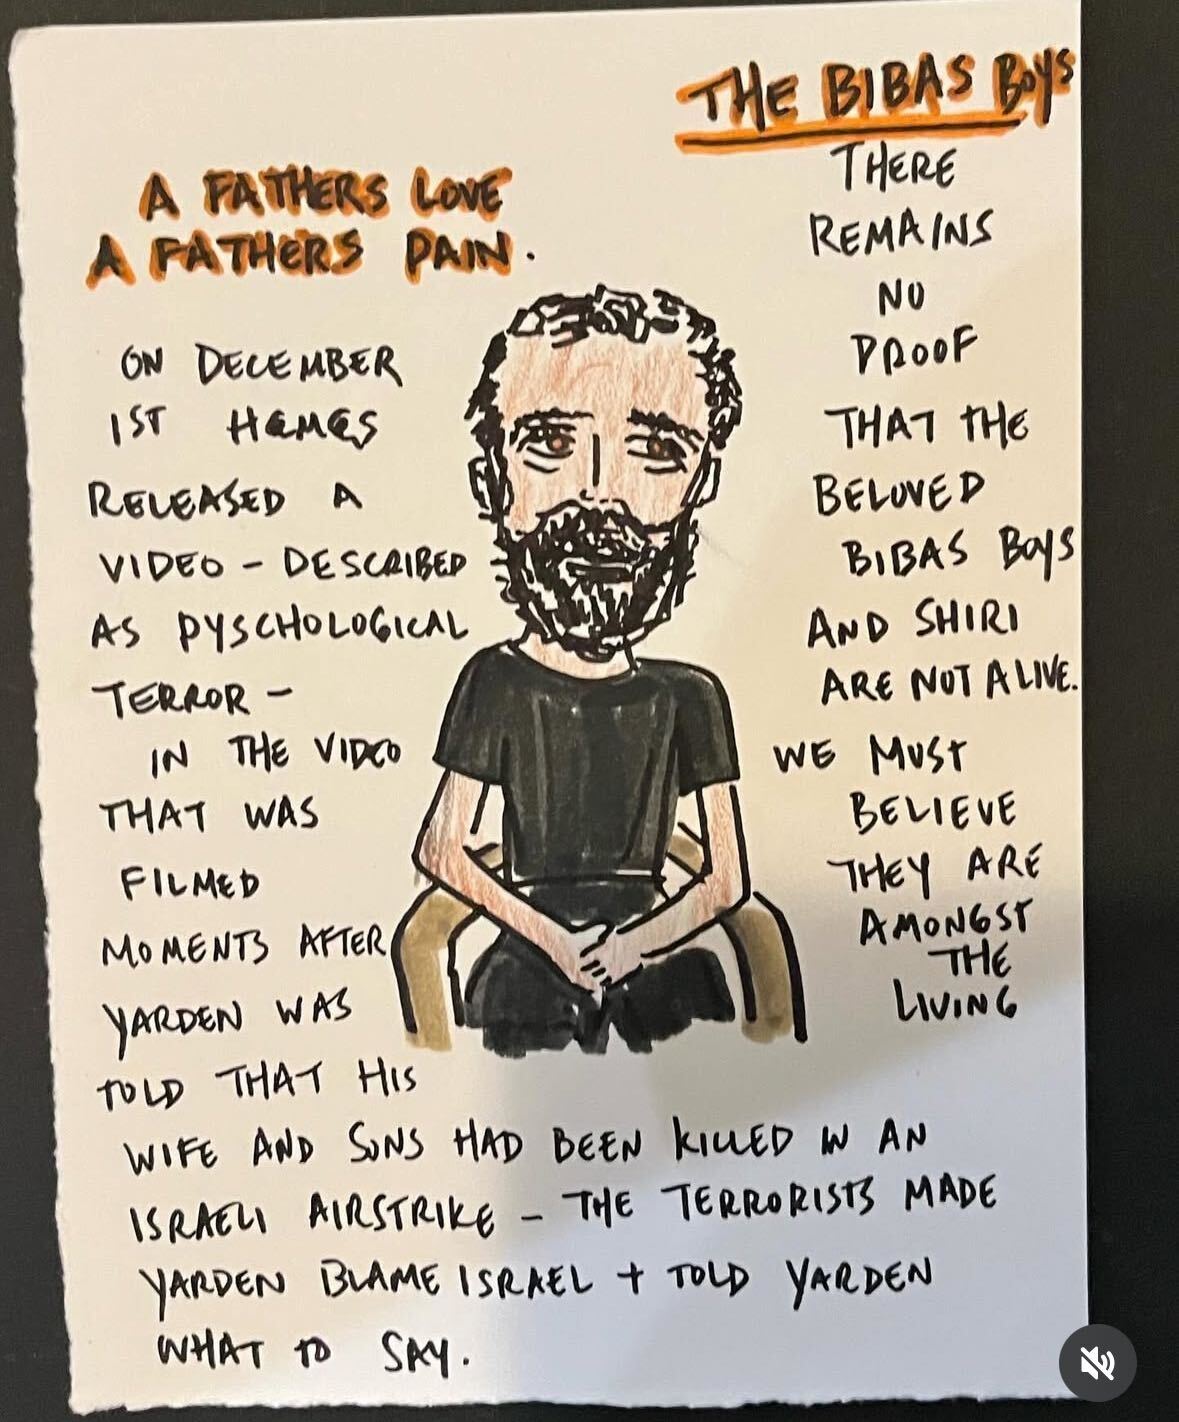 THE BIBAS BOYS
THERE
REMAINS
NO
PROOF
THAT THE
BELOVED
BIBAS BOYS
AND SHIRI
ARE NOT ALIVE.
WE MUST
BELIEVE
THEY ARE
AMONGST
THE
LIVING
A FATHERS LOVE
A FATHERS PAIN.
ON DECEMBER
1ST HAMAS
RELEASED A
VIDEO - DESCRIBED
AS PYSCHOLOGICAL
TERROR -
IN THE VIDEO
THAT WAS
FILMED
MOMENTS AFTER
YARDEN WAS
TOLD THAT HIS
WIFE AND SONS HAD BEEN KILLED IN AN
ISRAELI AIRSTRIKE - THE TERRORISTS MADE
YARDEN BLAME ISRAEL + TOLD YARDEN
WHAT TO SAY.